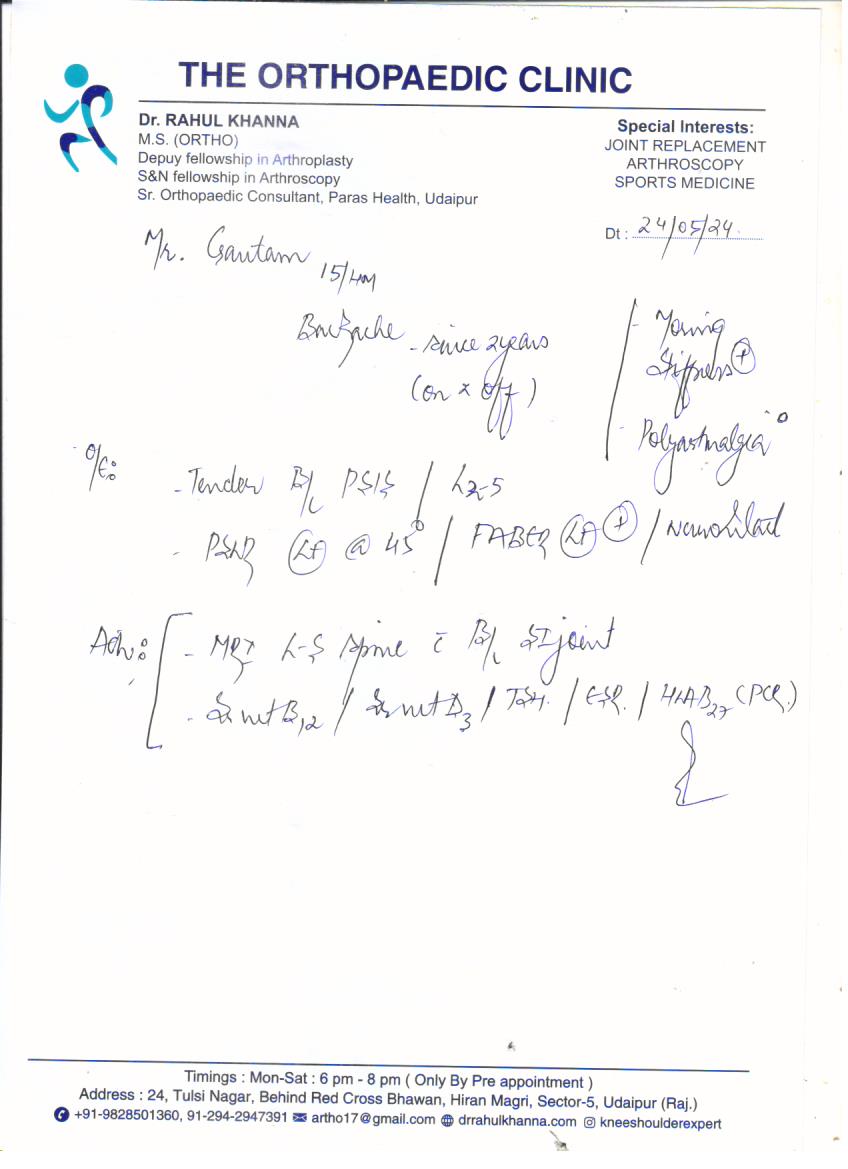 THE ORTHOPAEDIC CLINIC
Dr. RAHUL KHANNA
M.S. (ORTHO)
Depuy fellowship in Arthroplasty
S&N fellowship in Arthroscopy
Sr. Orthopaedic Consultant, Paras Health, Udaipur
Special Interests:
JOINT REPLACEMENT
ARTHROSCOPY
SPORTS MEDICINE
Dt : 24/05/24.
Mr. Gautam
Backache - since 2 years
(on & off)
Stiffness +
- Polyarthralgia °
O/E:
- Tender B/L PSIS /
- @ 45° / FABER Lt + /
Adv:
- MRI L-S spine c̄ B/L SI joint
- B12 / D3 / TSH. / ESR. / HLAB27 (PCR.)
Timings : Mon-Sat : 6 pm - 8 pm ( Only By Pre appointment )
Address : 24, Tulsi Nagar, Behind Red Cross Bhawan, Hiran Magri, Sector-5, Udaipur (Raj.)
+91-9828501360, 91-294-2947391 artho17@gmail.com drrahulkhanna.com kneeshoulderexpert